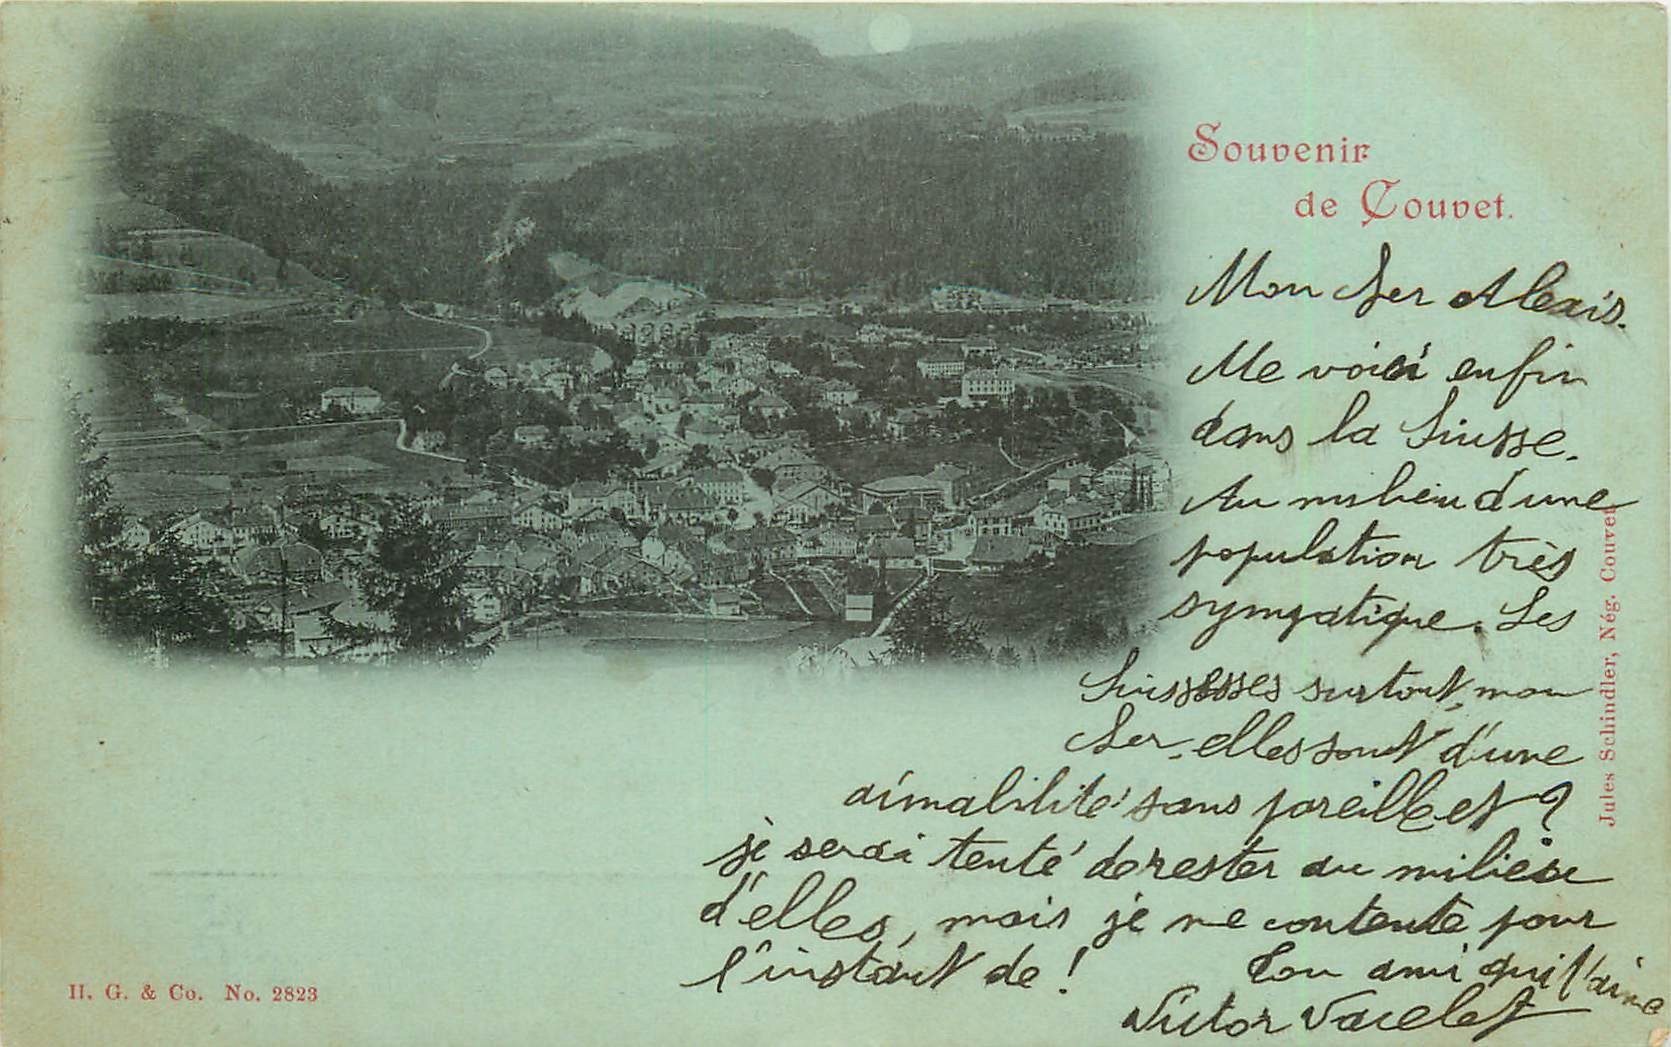 Souvenir
de Couvet.
Mon cher Alexis.
Me voici enfin
dans la Suisse.
Au milieu d'une
population très
sympatique. Les
Suissesses surtout, mon
cher, elles sont d'une
aimabilité sans pareille et ?
je serai tenté de rester au milieu
d'elles, mais je me contente pour
l'instant de !
Ton ami qui t'aime
Victor Vacelet
Jules Schindler, Nég. Couvet
H. G. & Co. No. 2823